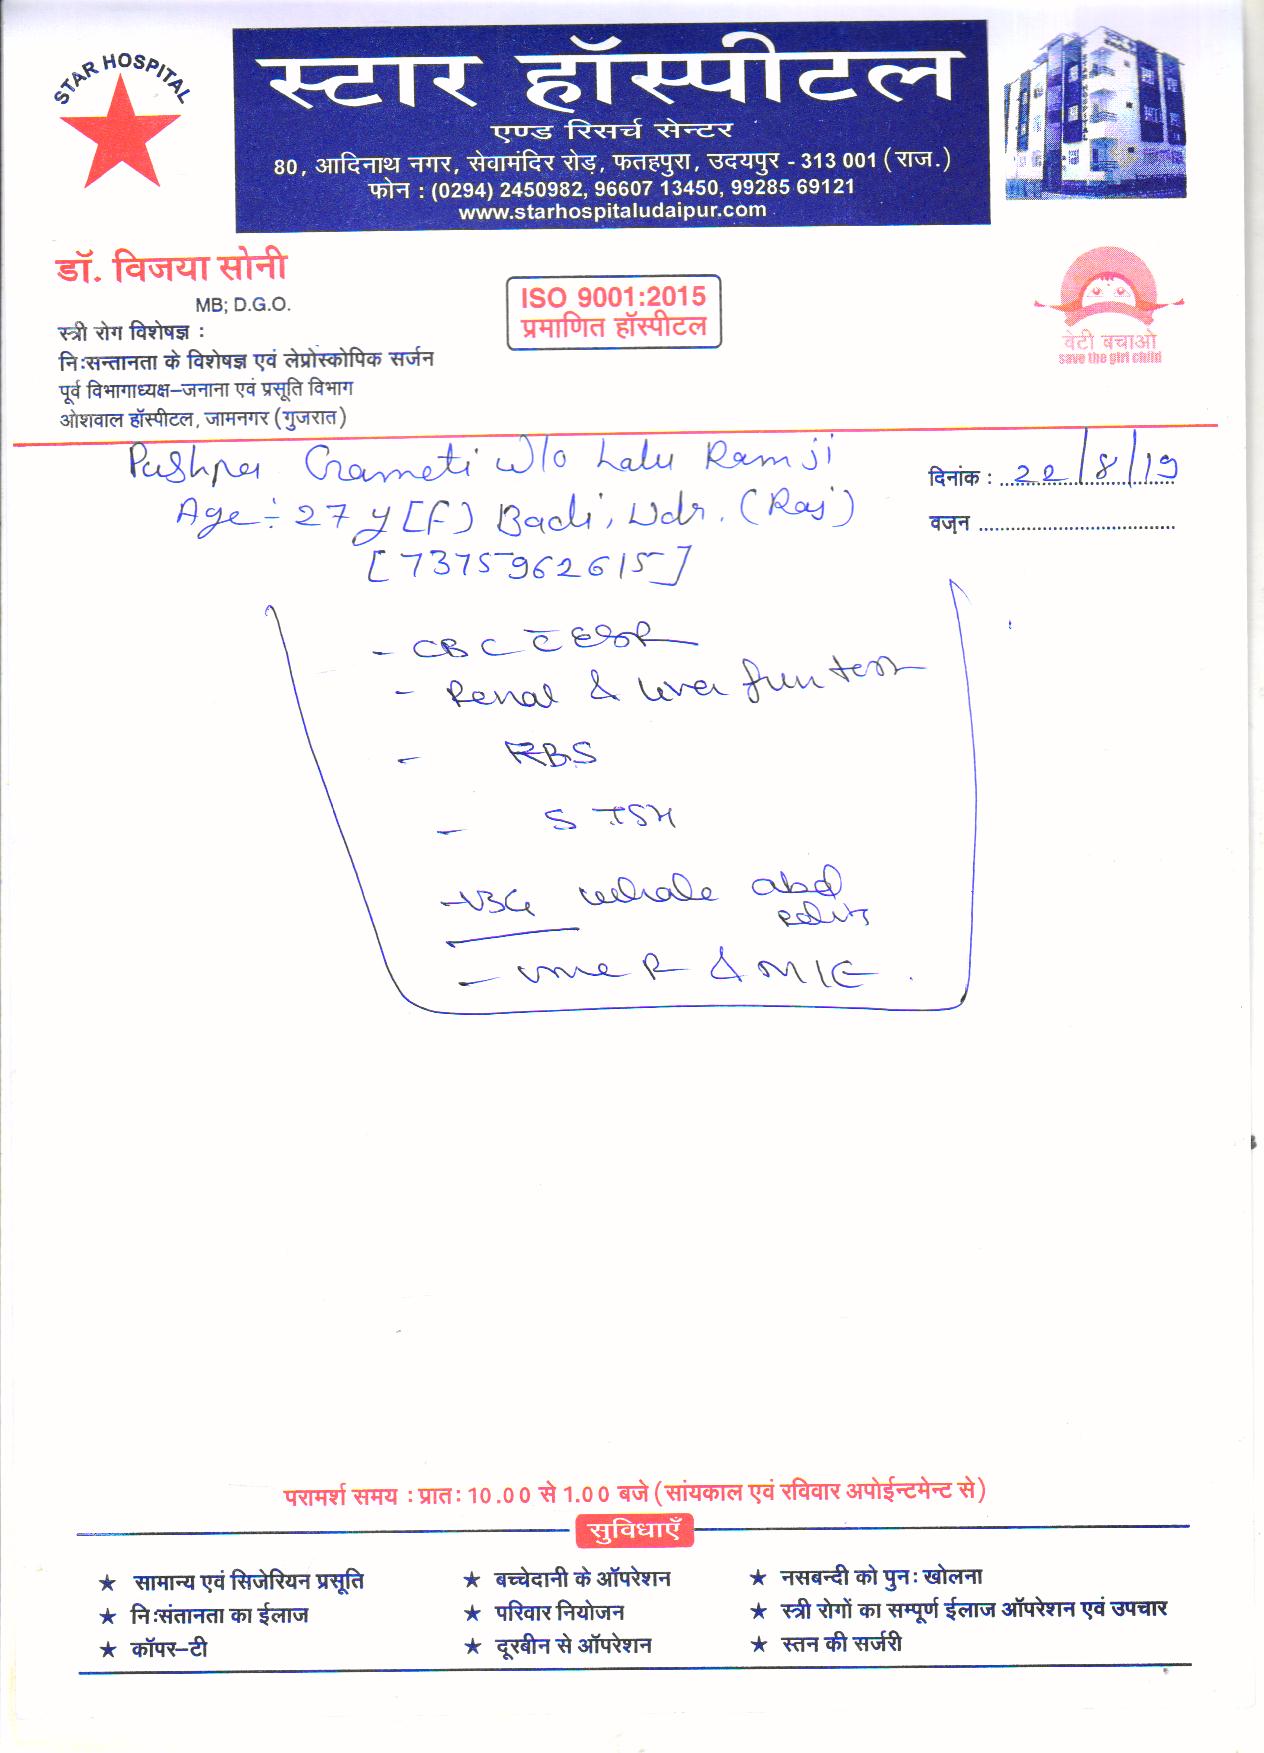 STAR HOSPITAL
स्टार हॉस्पीटल
एण्ड रिसर्च सेन्टर
80, आदिनाथ नगर, सेवामंदिर रोड़, फतहपुरा, उदयपुर - 313 001 (राज.)
फोन : (0294) 2450982, 96607 13450, 99285 69121
www.starhospitaludaipur.com
डॉ. विजया सोनी
MB; D.G.O.
स्त्री रोग विशेषज्ञ :
निःसन्तानता के विशेषज्ञ एवं लेप्रोस्कोपिक सर्जन
पूर्व विभागाध्यक्ष–जनाना एवं प्रसूति विभाग
ओशवाल हॉस्पीटल, जामनगर (गुजरात)
ISO 9001:2015
प्रमाणित हॉस्पीटल
बेटी बचाओ
save the girl child
दिनांक : 22/8/19
वज़न
Pushpa Gameti w/o Lalu Ramji
Age :- 27 y [F] Badi, Udr. (Raj)
[7375962615]
- CBC c̄ ESR
- Renal & liver fun test
- RBS
- S TSH
- USG whole abd
pelvis
- urine R & M/E
परामर्श समय : प्रातः 10.00 से 1.00 बजे (सांयकाल एवं रविवार अपोईन्टमेन्ट से)
सुविधाएँ
★ सामान्य एवं सिजेरियन प्रसूति ★ बच्चेदानी के ऑपरेशन ★ नसबन्दी को पुनः खोलना
★ निःसंतानता का ईलाज ★ परिवार नियोजन ★ स्त्री रोगों का सम्पूर्ण ईलाज ऑपरेशन एवं उपचार
★ कॉपर–टी ★ दूरबीन से ऑपरेशन ★ स्तन की सर्जरी